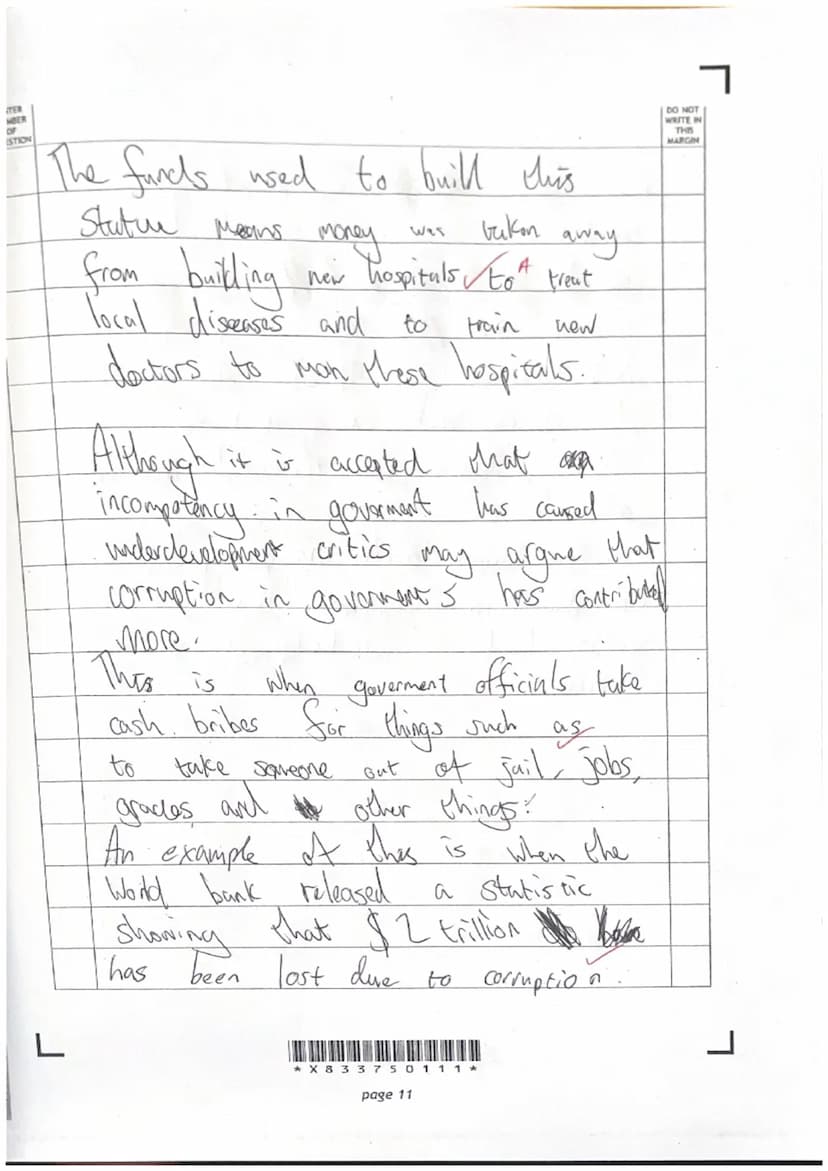 NTER
MBER
OF
ESTION
DO NOT
WRITE IN
THIS
MARGIN
The funds used to build this
statue means money was taken away
from building new hospitals ✓ to A treat
local diseases and to train new
doctors to man these hospitals.
Although it is accepted that
incompetency in goverment has caused
underdevelopment critics may argue that
corruption in goverments has contributed
more.
This is when goverment officials take
cash bribes for things such as
to take someone out of jail, jobs,
grades, and other things.
An example of this is when the
World bank released a statistic
showing that $2 trillion
has been lost due to corruption.
*X833750111*
page 11